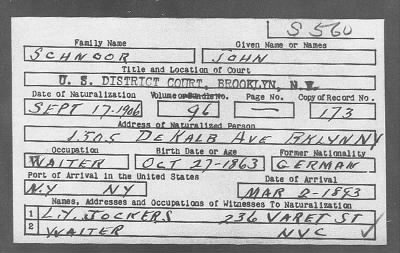 S560
Family Name Given Name or Names
SCHNOOR JOHN
Title and Location of Court
U. S. DISTRICT COURT, BROOKLYN, N.Y.
Date of Naturalization Volume or Bundle No. Page No. Copy of Record No.
SEPT 17-1906 96 — 173
Address of Naturalized Person
1305 DEKALB AVE BKLYN NY
Occupation Birth Date or Age Former Nationality
WAITER OCT 27-1863 GERMAN
Port of Arrival in the United States Date of Arrival
NY NY MAR 2-1893
Names, Addresses and Occupations of Witnesses To Naturalization
1 L.Y. JOCKERS 236 VARET ST
2 WAITER NYC